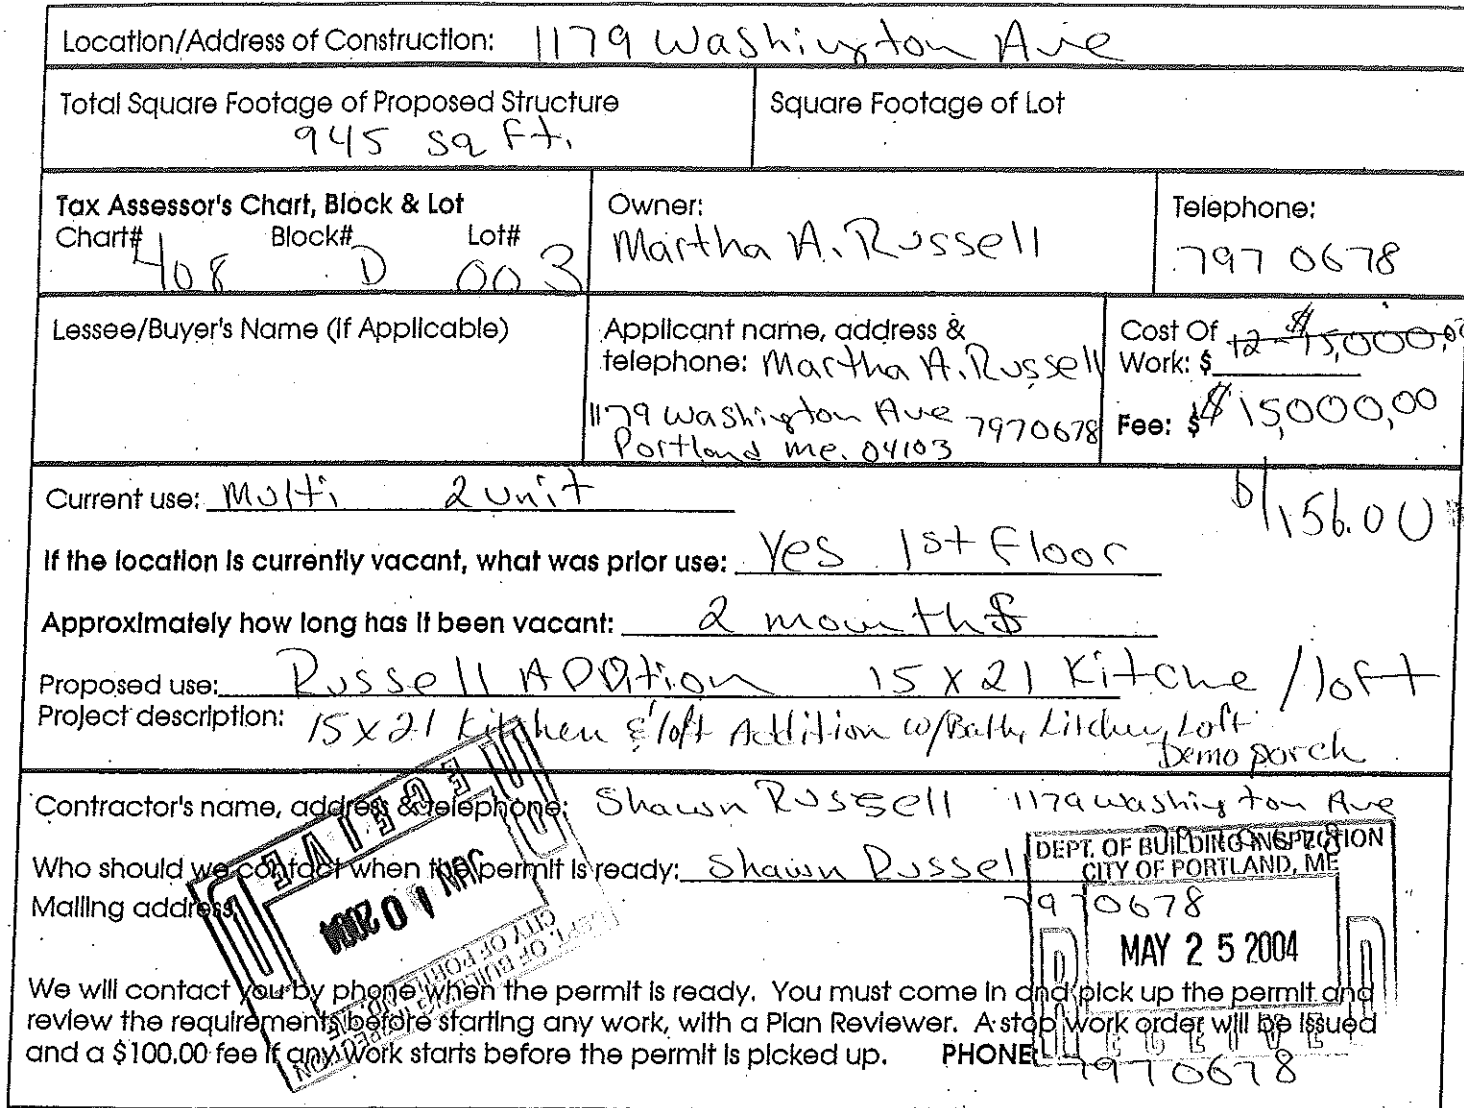 Location/Address of Construction: 1179 Washington Ave
Total Square Footage of Proposed Structure
945 sq ft.
Square Footage of Lot
Tax Assessor's Chart, Block & Lot
Chart# Block# Lot#
408 D 003
Owner:
Martha A. Russell
Telephone:
797 0678
Lessee/Buyer's Name (If Applicable)
Applicant name, address &
telephone: Martha A. Russell
1179 Washington Ave 7970678
Portland me. 04103
Cost Of
Work: $ 12 - $15,000.00
Fee: $ $15,000,00
156.00
Current use: Multi 2 unit
If the location is currently vacant, what was prior use: Yes 1st Floor
Approximately how long has it been vacant: 2 mounths
Proposed use: Russell ADDition 15 x 21 Kitche / loft
Project description: 15 x 21 Kitchen & loft Addition w/Bath, Kitchen, Loft
Demo porch
Contractor's name, address & telephone: Shawn Russell 1179 washington Ave
Who should we contact when the permit is ready: Shawn Russell
Mailing address:
7970678
DEPT. OF BUILDING INSPECTION
CITY OF PORTLAND, ME
MAY 25 2004
RECEIVED
RECEIVED
JUN 10 2004
DEPT. OF BUILDING INSPECTION
CITY OF PORTLAND, ME
We will contact you by phone when the permit is ready. You must come in and pick up the permit and
review the requirements before starting any work, with a Plan Reviewer. A stop work order will be issued
and a $100.00 fee if any work starts before the permit is picked up. PHONE: 7970678